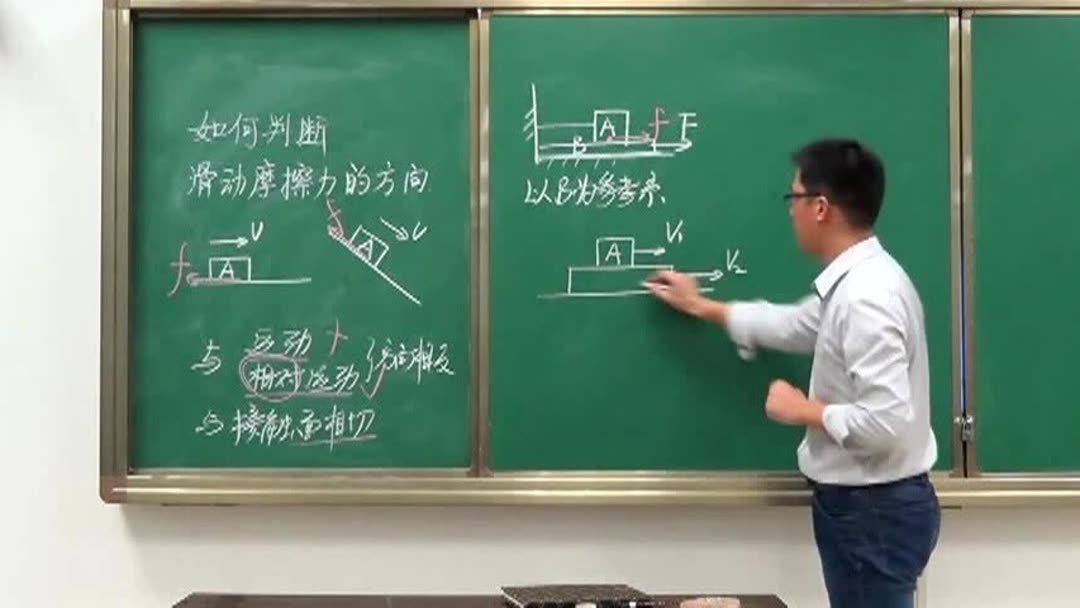 如何判断
滑动摩擦力的方向
f A V
f A v
与 运动 ×
相对运动 方向相反
与接触面相切
A f F
B
以B为参考系
A V₁
V₂